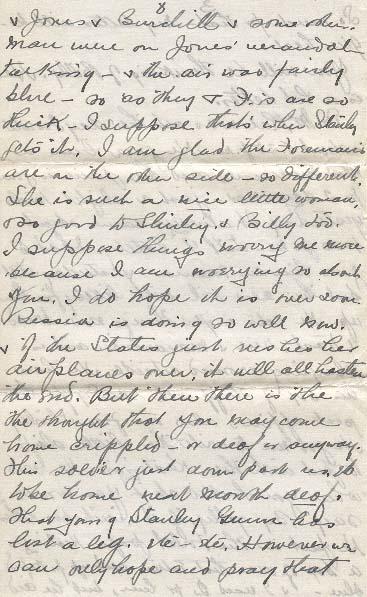 8
& Jones & Burchill & some other
man were on Jones' verandah
talking - & the air was fairly
blue - so as they & F. is are so
thick - I suppose that's where Stanley
gets it. I am glad the Foremans
are on the other side - so different.
She is such a nice little woman,
& so good to Shirley, & Billy too.
I suppose things worry me more
because I am worrying so about
you. I do hope it is over soon
Russia is doing so well now.
& if the States just rushes her
airplanes over, it will all hasten
the end. But then there is the
the thought that you may come
home crippled - or deaf or anyway.
This soldier just down past us, is
to be home next month deaf.
That young Stanley Gunn has
lost a leg. etc - etc. However we
can only hope and pray that